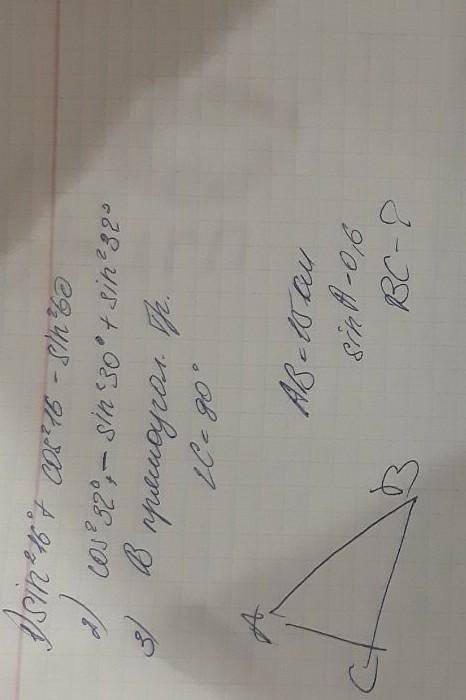 1) sin²16° + cos²16 - sin²60
2) cos²32° + - sin²30° + sin²32°
3) В прямоугол. Тр.
∠C = 90°
AB = 15 см
sin A - 0,6
BC - ?
A
B
C